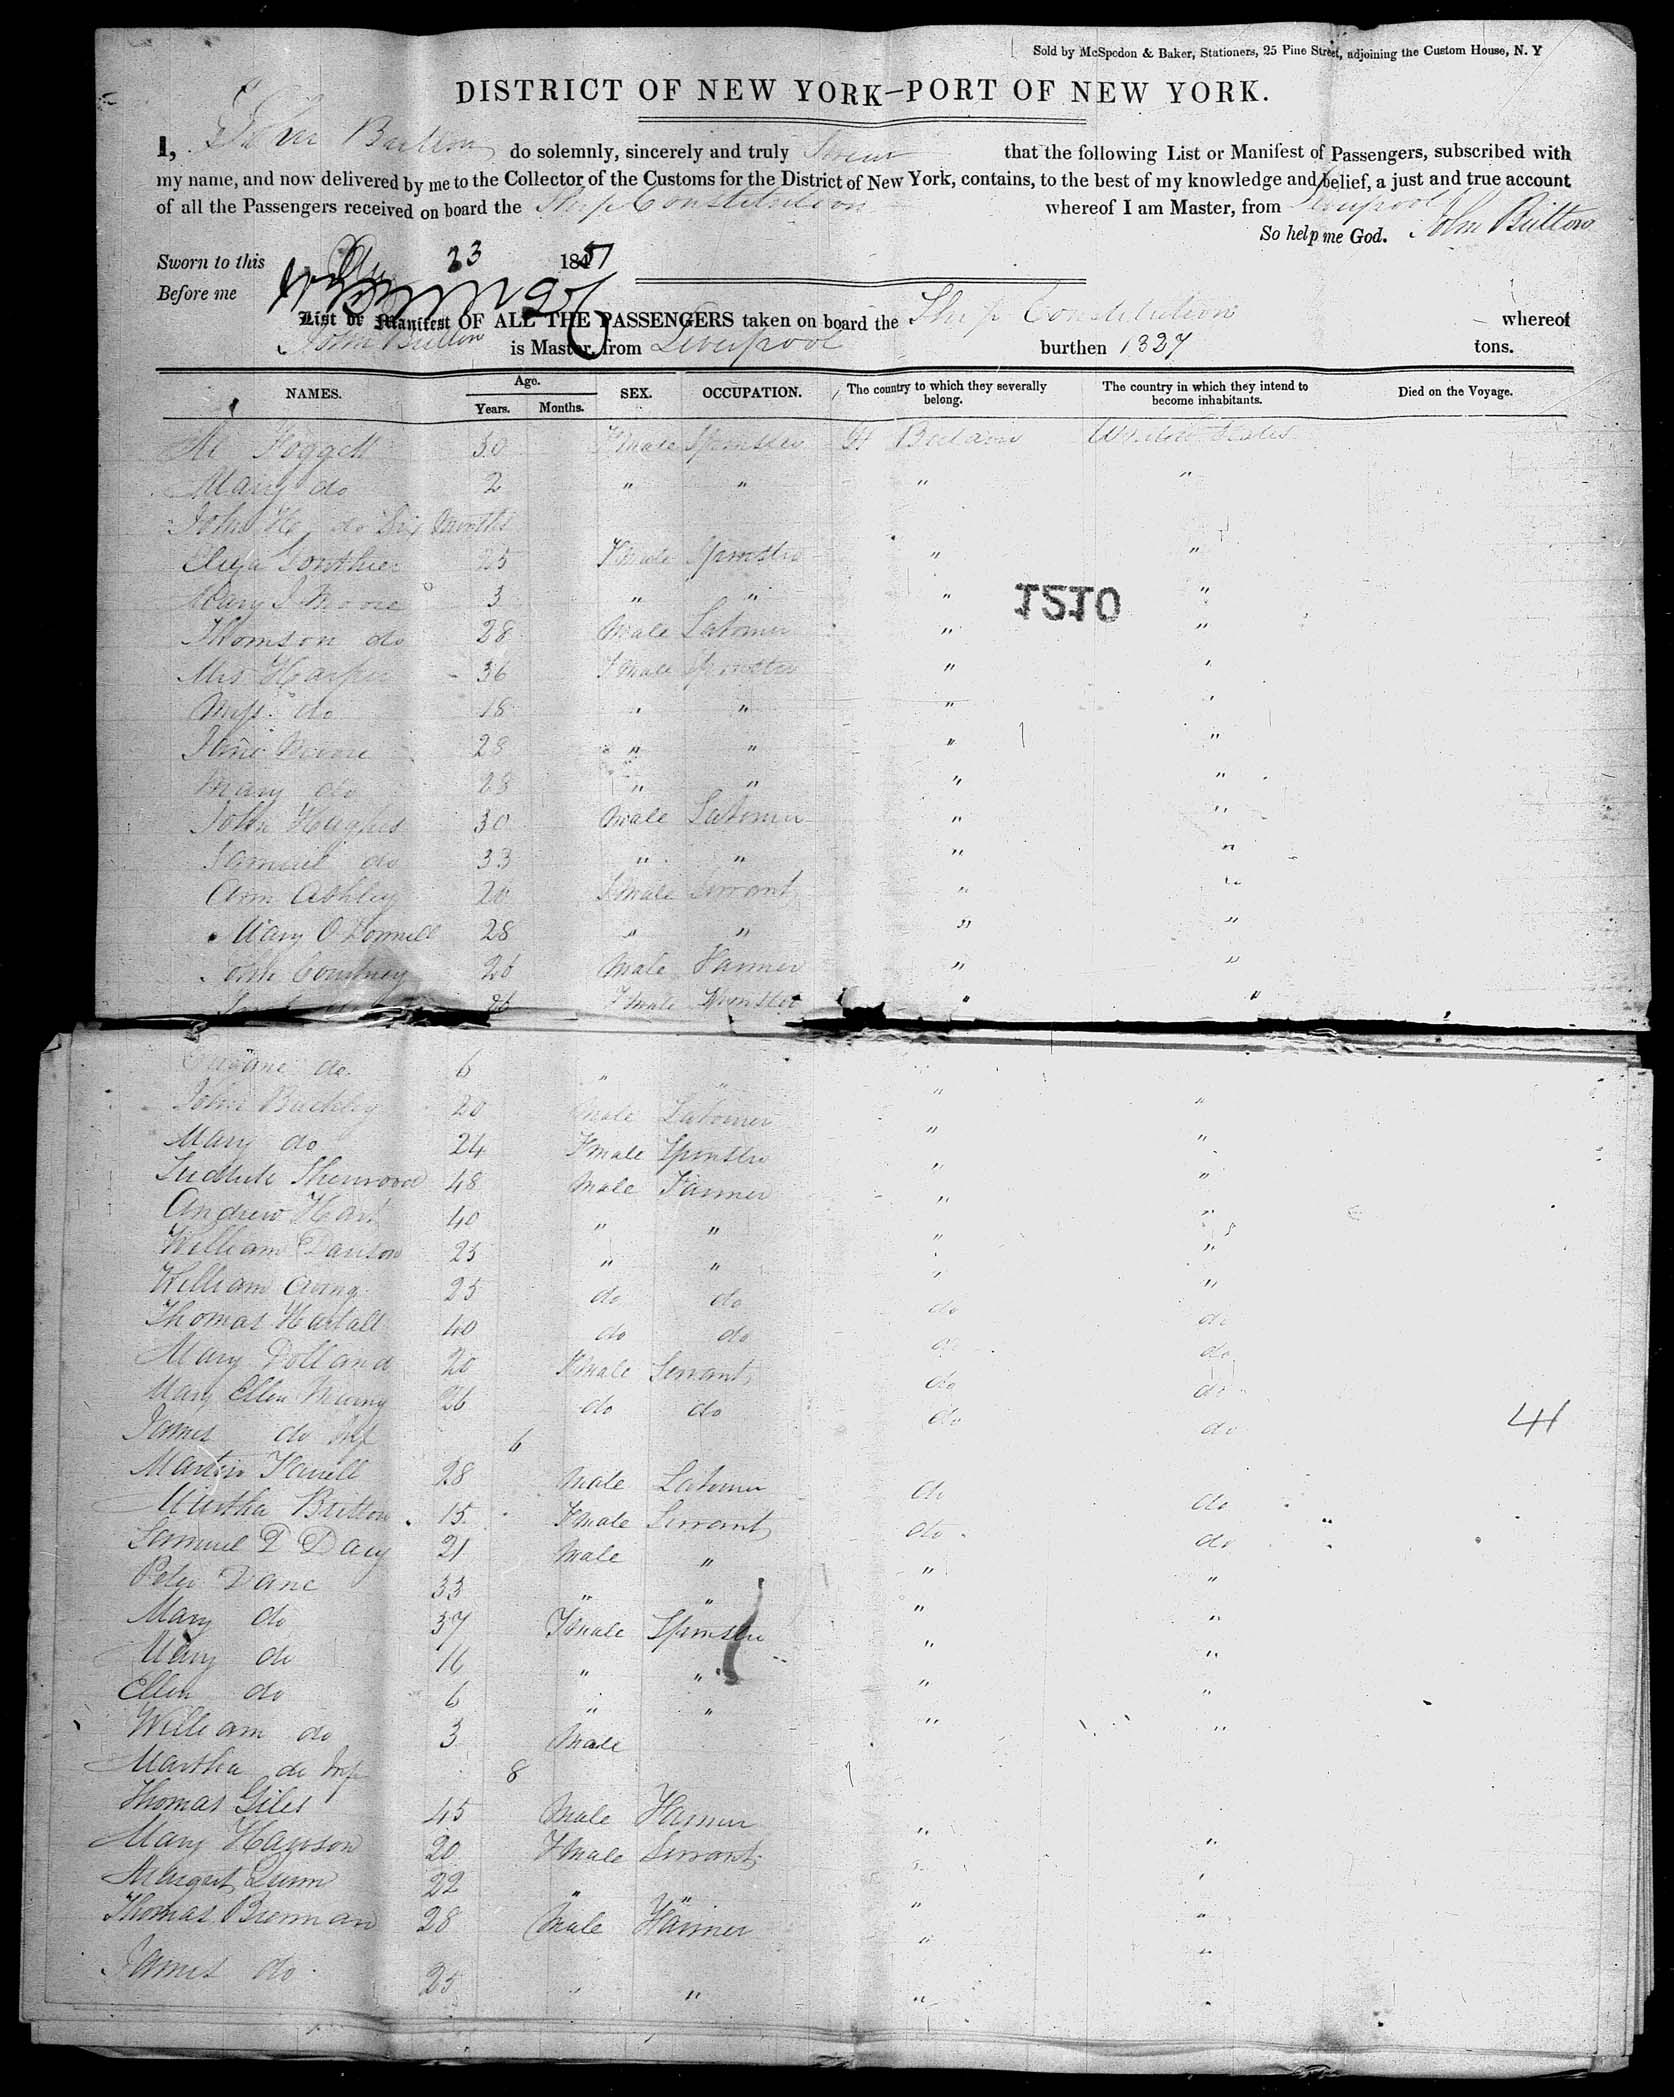 Sold by McSpedon & Baker, Stationers, 25 Pine Street, adjoining the Custom House, N. Y
DISTRICT OF NEW YORK—PORT OF NEW YORK.
I, John Britton do solemnly, sincerely and truly Swear that the following List or Manifest of Passengers, subscribed with
my name, and now delivered by me to the Collector of the Customs for the District of New York, contains, to the best of my knowledge and belief, a just and true account
of all the Passengers received on board the Ship Constitution whereof I am Master, from Liverpool
So help me God. John Britton
Sworn to this 23 1847
Before me
List or Manifest OF ALL THE PASSENGERS taken on board the Ship Constitution whereof
John Britton is Master, from Liverpool burthen 1327 tons.
NAMES. Age. Years. Months. SEX. OCCUPATION. The country to which they severally belong. The country in which they intend to become inhabitants. Died on the Voyage.
Hoggett 30 Female Spinster Gt Britain United States
Mary do 2 " " " "
John H do Six Months
Eliza 25 Female Spinster " "
Mary J Moore 3 " " " "
1210
Thomson do 28 Male Laborer " "
Mrs Harper 36 Female Spinster " "
Miss do 18 " " " "
Jane Moore 28 " " " "
Mary do 23 " " " "
John Hughes 30 Male Laborer " "
Samuel do 33 " " " "
Ann Ashley 20 Female Servant " "
Mary O Donnell 28 " " " "
Courtney 26 Male Farmer " "
26 Female Spinster " "
do 6 " " "
John Buckley 20 Male Laborer " "
Mary do 24 Female Spinster " "
Sherwood 48 Male Farmer " "
Andrew Hart 40 " " " "
William Dawson 25 " " " "
William 25 do do do do
Thomas Hartall 40 do do do do
Mary Dolland 20 Female Servant do do
Mary Ellen Murry 26 do do do do
41
James do Inf 6
Martin Farrell 28 Male Laborer do do
Martha Britton 15 Female Servant do do
Samuel D Davy 21 Male " " "
Peter Dane 33 " " " "
Mary do 37 Female Spinster " "
Mary do 16 " " " "
Ellen do 6 " " " "
William do 3 Male
Martha do Inf 8
Thomas Giles 45 Male Farmer " "
Mary Hawson 20 Female Servant " "
Margart Quinn 22 " " " "
Thomas Brennan 28 Male Farmer " "
James do 25 " " " "